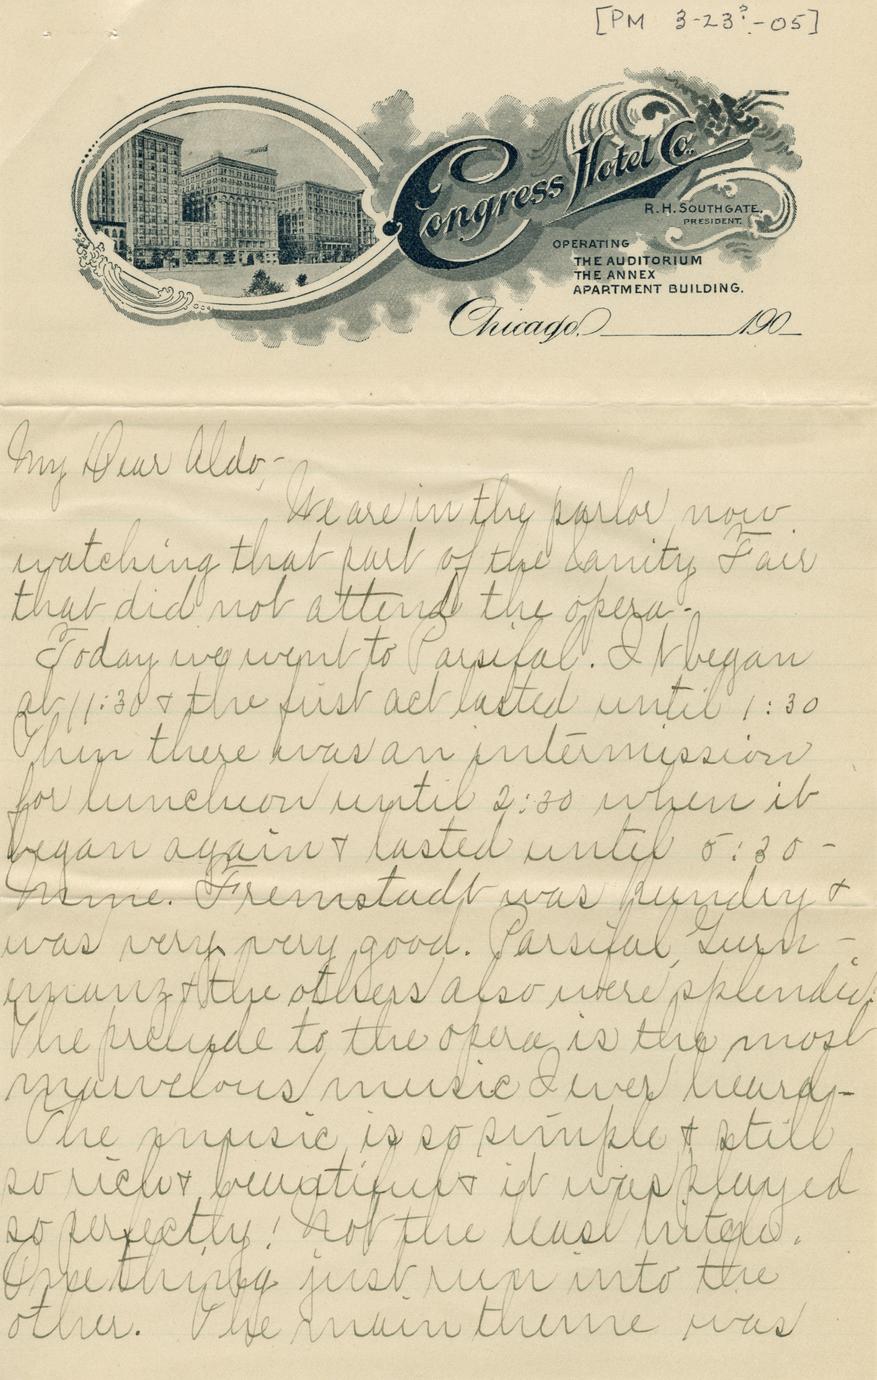 [PM 3-23?-05]
Congress Hotel Co.
R. H. SOUTHGATE,
PRESIDENT.
OPERATING
THE AUDITORIUM
THE ANNEX
APARTMENT BUILDING.
Chicago, 190
My Dear Aldo,-
We are in the parlor now
watching that part of the Vanity Fair
that did not attend the opera-
Today we went to Parsifal. It began
at 11:30 & the first act lasted until 1:30
Then there was an intermission
for luncheon until 2:30 when it
began again & lasted until 5:30 -
Mme. Fremstadt was Kundry &
was very very good. Parsifal, Gurn-
emanz & the others also were splendid.
The prelude to the opera is the most
marvelous music I ever heard-
The music is so simple & still
so rich & beautiful & it was played
so perfectly! Not the least hitch.
One thing just run into the
other. The main theme was